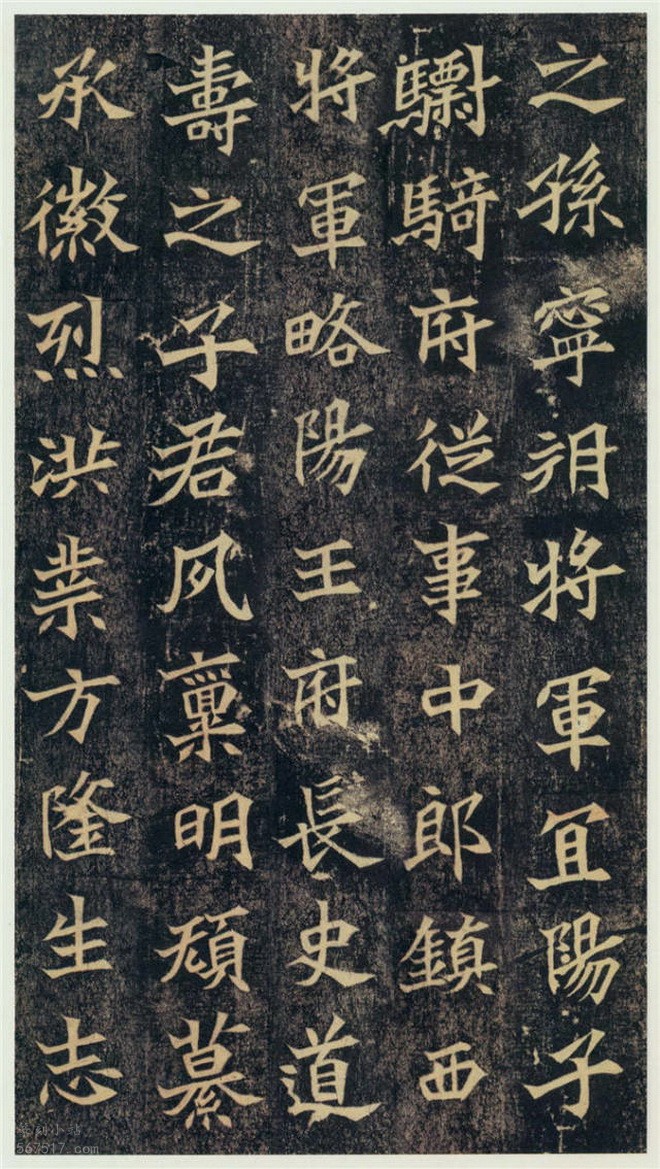 之孫寧朔將軍冝陽子
驃騎府從事中郎鎮西
將軍略陽王府長史道
壽之子君夙稟明纂
承徽烈洪業方隆生志
567517.com